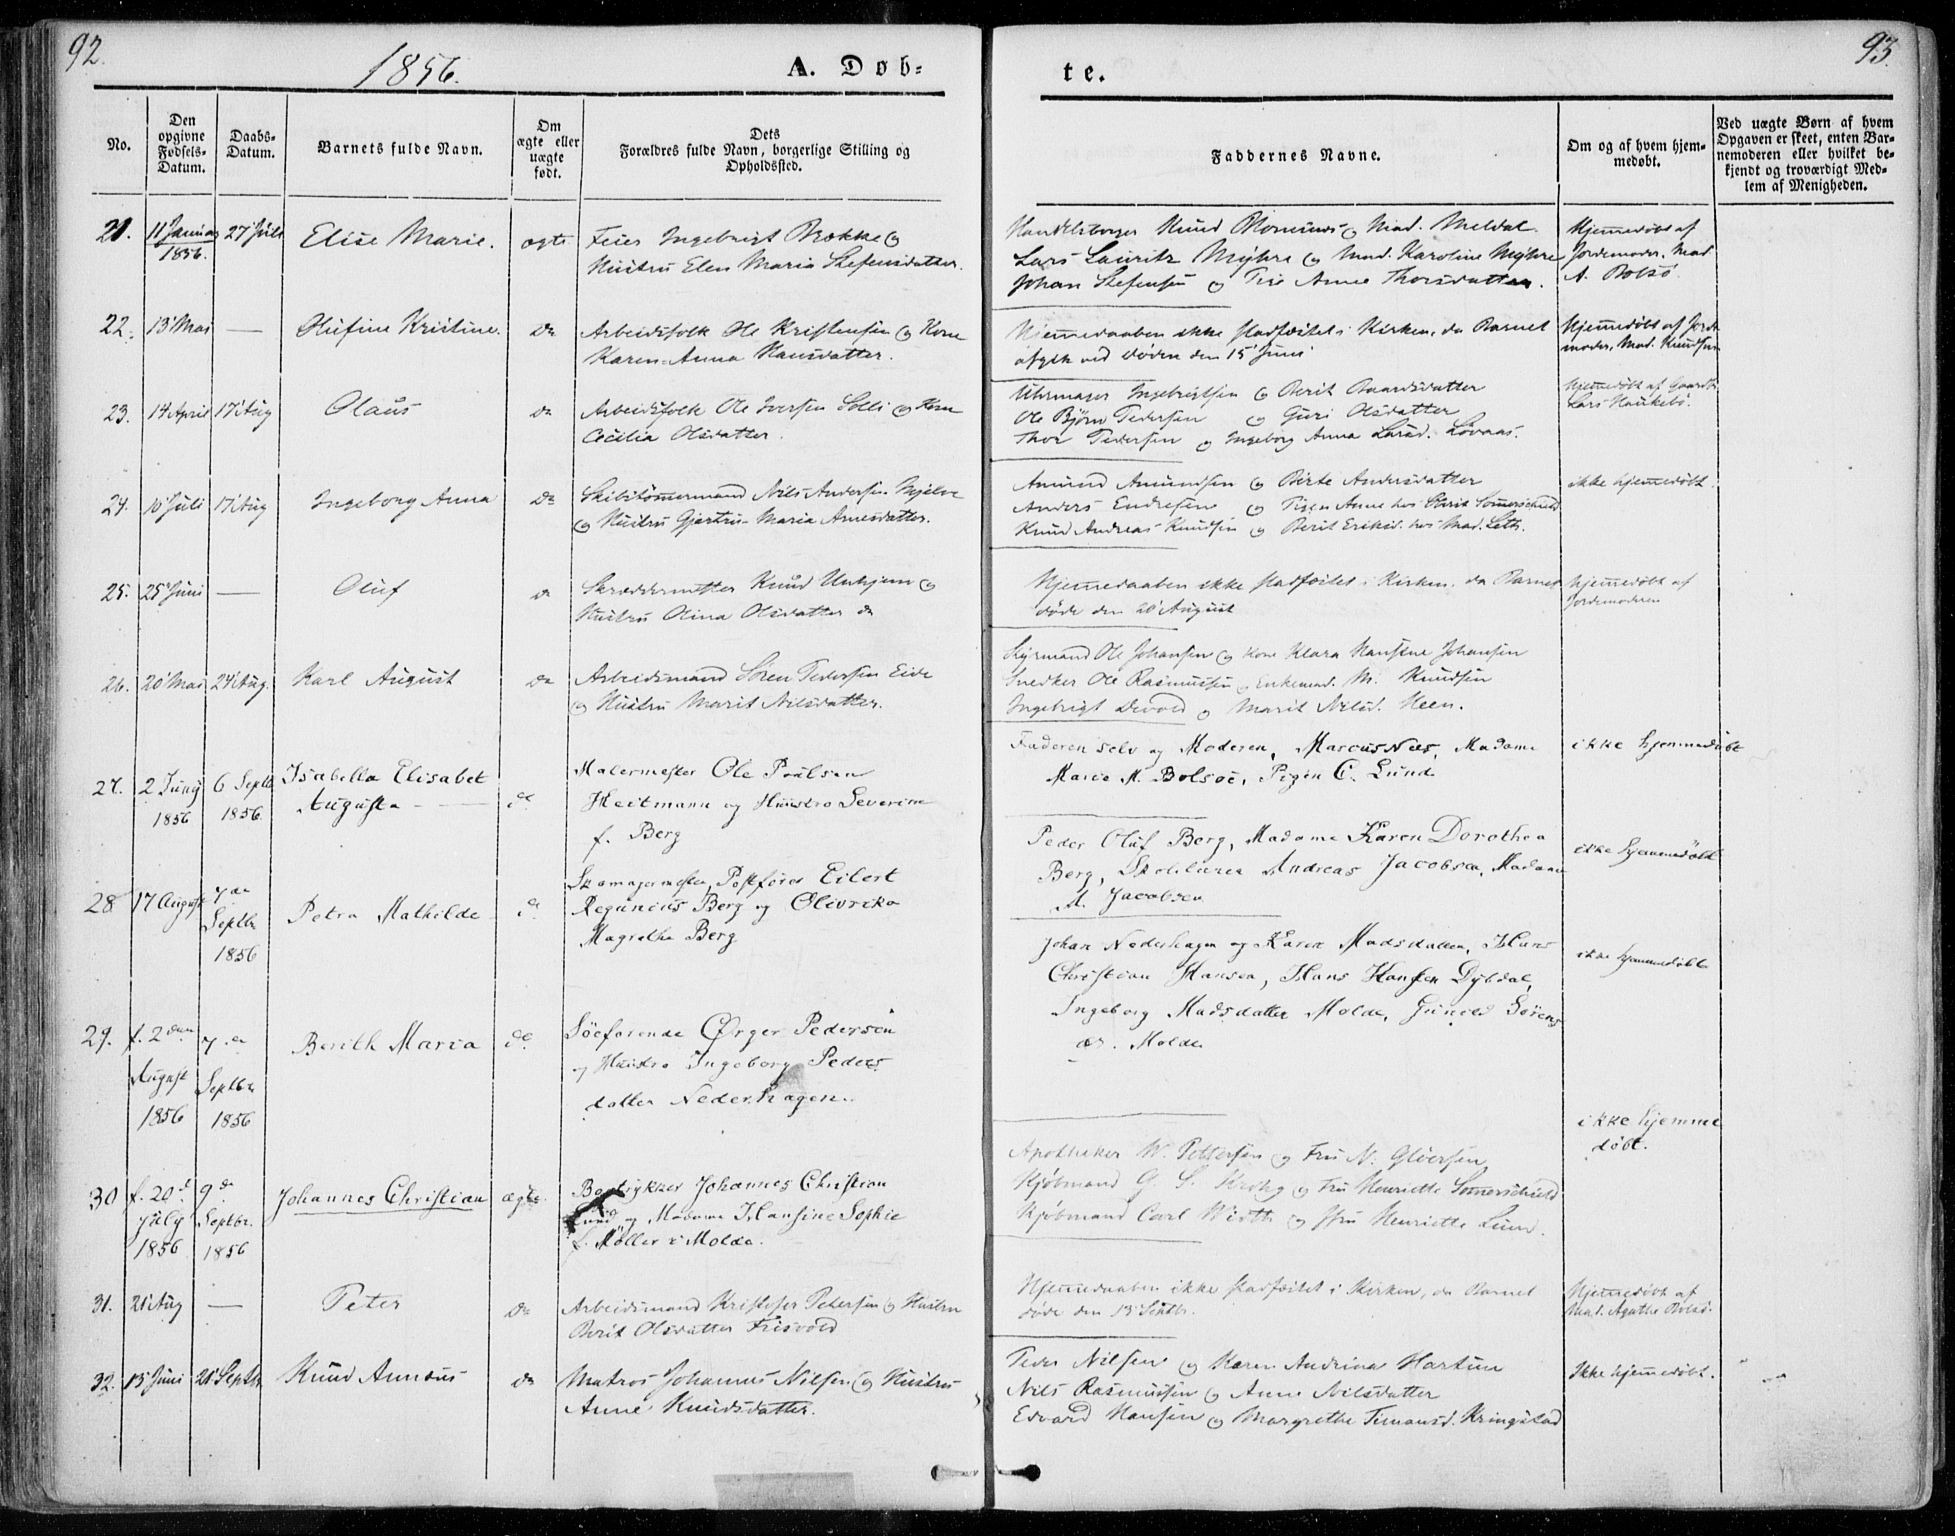 92.
1856.
A. Døb-
No.
Den opgivne Fødsels-Datum.
Daabs-Datum.
Barnets fulde Navn.
Om ægte eller uægte født.
Dets
Forældres fulde Navn, borgerlige Stilling og Opholdssted.
21. 11 Januar 1856. 27 Juli Elise Marie. ægte Feier Ingebrigt Brække og
Hustru Elen Maria Stefensdatter.
22. 13 Mai — Olufine Kristine. Do Arbeidsfolk Ole Kristensen og Kone
Karen Anna Hansdatter.
23. 14 April 17 Aug Olaus Do Arbeidsfolk Ole Iversen Solli og Kone
Cecilia Olsdatter.
24. 10 Juli 17 Aug Ingeborg Anna Do Skibstømmermand Nils Andersen Hjelve
og Hustru Gjertru Maria Arnesdatter.
25. 25 Juni — Oluf Do Skræddermester Knud Unhjem og
Hustru Olina Olsdatter Do
26. 20 Mai 24 Aug. Karl August Do Arbeidsmand Søren Pedersen Eide
og Hustru Marit Nilsdatter.
27. 2 Juny 1856 6 Septb 1856. Isabella Elisabet
Augusta — do Malermester Ole Poulsen
Heitmann og Huustro Severine
f. Berg
28 17 August 7de Septbr 1856 Petra Mathilde do Skomagermester, Postfører Eilert
Regunius Berg og Olivrika
Magrethe Berg
29. f. 2den August 1856 7de Septbr 1856 Berith Maria do Söeforende Ørger Pedersen
og Huustro Ingeborg Peders
datter Nederhagen.
30 f. 20d July 1856 9de Septbr. 1856 Johannes Christian ægte. Bogtrykker Johannes Christian
Lund og Madame Hansine Sophie
f. Møller i Molde.
31. 21 Aug — Peter Do Arbeidsmand Kristofer Petersen og Hustru
Berit Olsdatter Frisvold
32. 15 Juni 21 Septbr Knud Annæus Do Matros Johannes Nilsen og Hustru
Anne Knudsdatter.
93.
te.
Faddernes Navne.
Om og af hvem hjem-
medøbt.
Ved uægte Børn af hvem
Opgaven er skeet, enten Bar-
nemoderen eller hvilket be-
kjendt og troværdigt Med-
lem af Menigheden.
Handelsborger Knud og Mad. Meldal
Lars Lauritz Myhre og Mad. Karoline Myhre
Johan Stefensen og Pige Anne Thorsdatter.
Hjemmedøbt af
Jordemoder, Mad.
A. Bolsø.
Hjemmedaaben ikke stadfæstet i Kirken, da Barnet
afgik ved døden den 15 Juni
Hjemmedøbt af Jorde
moder, Mad. Knudsen
Uhrmager Ingebrigtsen og Berit Baardsdatter
Ole Bjørn Pedersen og Guri Olsdatter
Thor Pedersen og Ingeborg Anna Larsd. Lovaas.
Hjemmedøbt af Gaardb.
Lars Haukebø.
Amund Amundsen og Birte Andersdatter
Anders Endresen og Pigen Anne hos Sommerschield
Knud Andreas Knudsen og Berit Eriksd. hos Mad. Leth.
ikke hjemmedøbt.
Hjemmedaaben ikke stadfæstet i Kirken, da Barnet
døde den 20 August
Hjemmedøbt af
Jordemoderen
Styrmand Ole Johansen og Kone Klara Hansine Johansen
Snedker Ole Rasmussen og Enkemad. M. Knudsen
Ingebrigt Devold og Marit Nilsd. Heen.
Faderen selv og Moderen, Marcus Næs, Madame
Marie M. Bolsøe, Pigen C. Lund
ikke hjemmedøbt
Peder Oluf Berg, Madame Karen Dorothea
Berg, Andreas Jacobsen, Madame
A. Jacobsen
ikke hjemmedøbt
Johan Nederhagen og Karen Madsdatter, Hans
Christian Hansen, Hans Hansen Dybdal,
Ingeborg Madsdatter Molde, Gunild Sörens
dr. Molde
ikke hjemmedøbt
ikke hjemme
døbt.
Apotheker W. Pettersen og Fru N. Gløersen
Kjøbmand G. S. Krohg og Fru Henriette Sommerschield
Kjøbmand Carl Wirth og Fru Henriette Lund.
Hjemmedaaben ikke stadfæstet i Kirken, da Barnet
døde den 13 Septbr.
Hjemmedøbt af
Mad. Agathe Bolsø.
Peder Nilsen og Karen Andrina Hartun
Nils Rasmussen og Anne Nilsdatter
Edvard Hansen og Margrethe Timansd. Kringstad
Ikke hjemmedøbt.